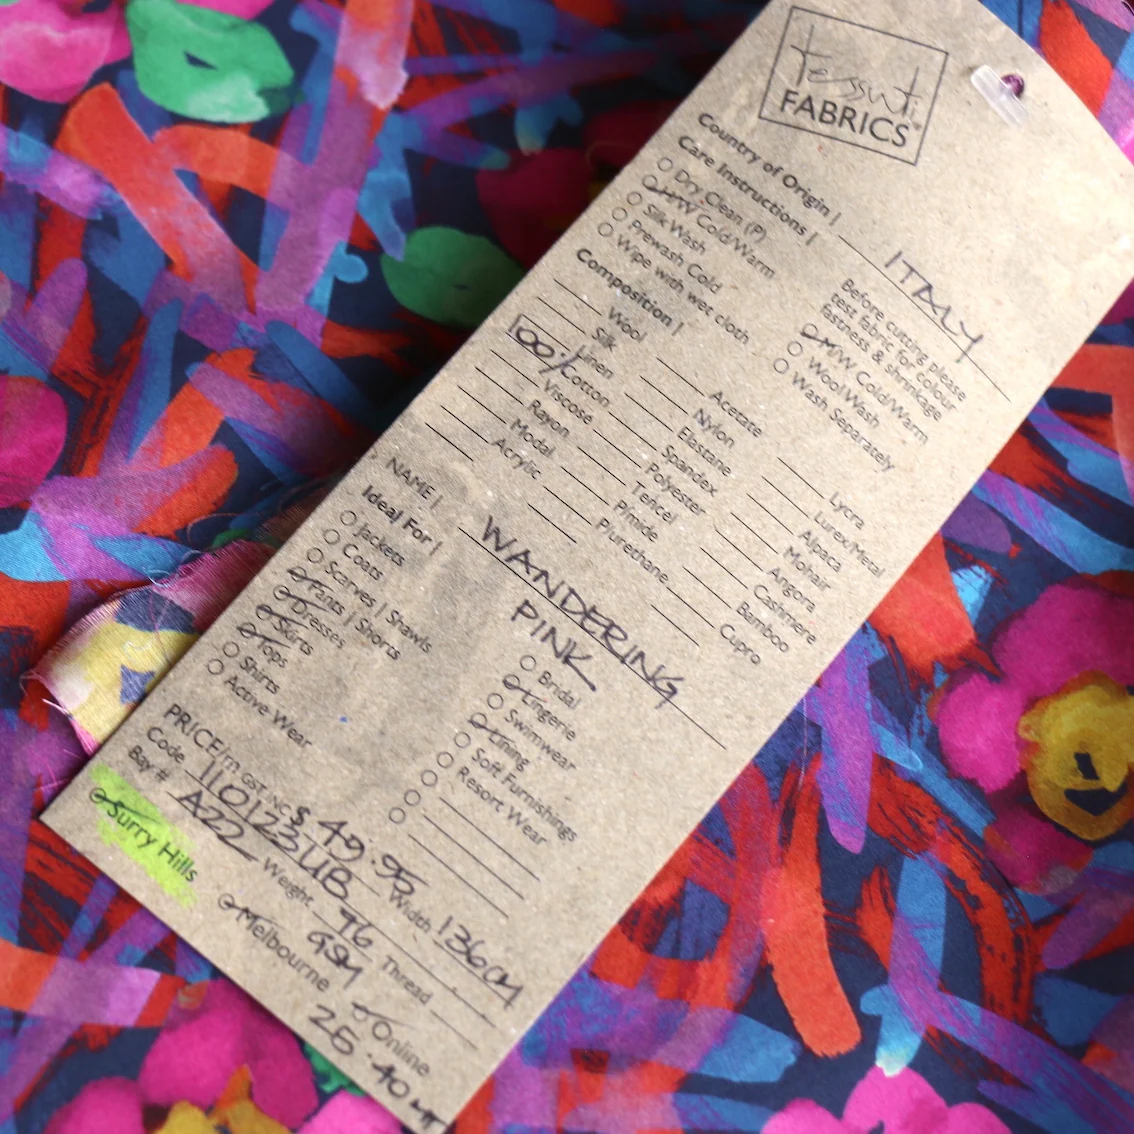 tessuti
FABRICS
Country of Origin | ITALY
Care Instructions |
Dry Clean (P)
H/W Cold/Warm
Silk Wash
Prewash Cold
Wipe with wet cloth
Before cutting please
test fabric for colour
fastness & shrinkage
M/W Cold/Warm
Wool Wash
Wash Separately
Composition |
Wool
Silk
Linen
100% Cotton
Viscose
Rayon
Modal
Acrylic
Acetate
Nylon
Elastane
Spandex
Polyester
Tencel
P/mide
P/urethane
Lycra
Lurex/Metal
Alpaca
Mohair
Angora
Cashmere
Bamboo
Cupro
NAME | WANDERING
PINK
Ideal For |
Jackets
Coats
Scarves | Shawls
Pants | Shorts
Dresses
Skirts
Tops
Shirts
Active Wear
Bridal
Lingerie
Swimwear
Lining
Soft Furnishings
Resort Wear
PRICE/m GST. NC $ 49.95
Code 110123UB Width 136CM
Bay # A22 Weight 96 GSM Thread
Surry Hills Melbourne Online
25.40 MT